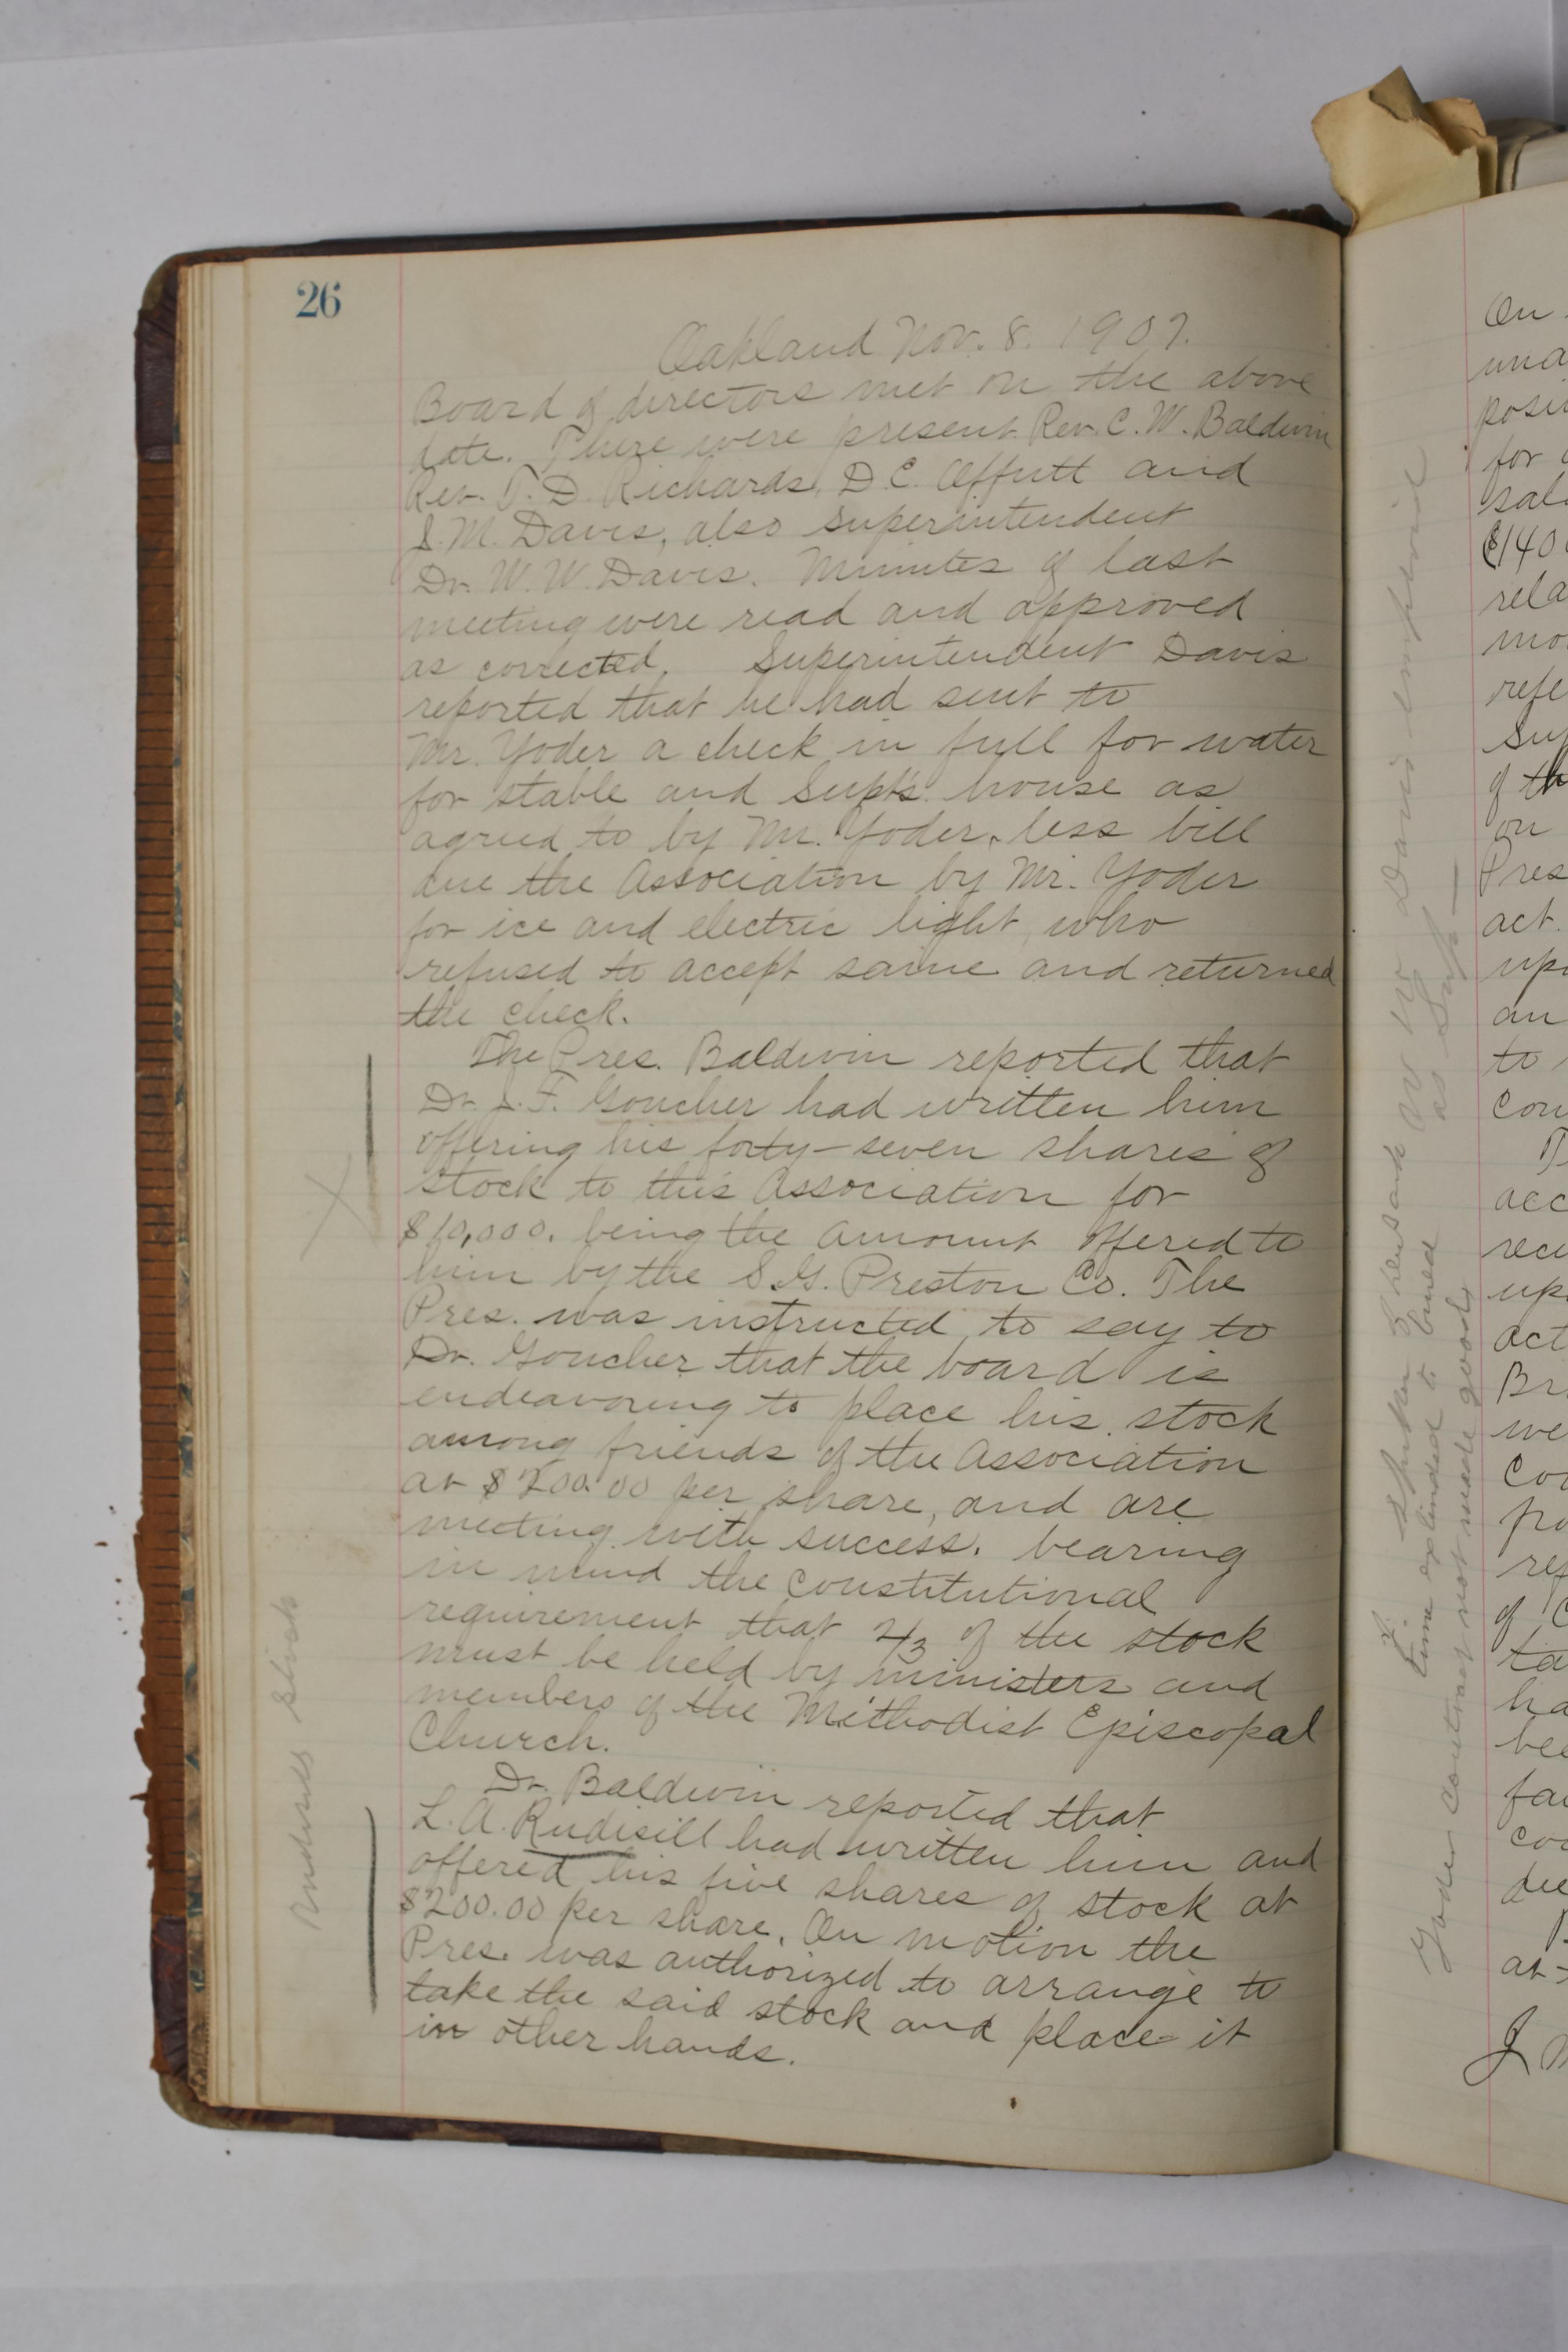 26
Oakland Nov. 8. 1907.
Board of directors met on the above
date. There were present Rev. C. W. Baldwin
Rev. T. D. Richards, D. E. Offutt and
S. M. Davis, also Superintendent
Dr. W. W. Davis. Minutes of last
meeting were read and approved
as corrected. Superintendent Davis
reported that he had sent to
Mr. Yoder a check in full for water
for stable and Supt's. house as
agreed to by Mr. Yoder, less bill
due the Association by Mr. Yoder
for ice and electric light, who
refused to accept same and returned
the check.
The Pres. Baldwin reported that
Dr. J. F. Goucher had written him
offering his forty-seven shares of
stock to this Association for
$10,000. being the amount offered to
him by the S. G. Preston Co. The
Pres. was instructed to say to
Dr. Goucher that the board is
endeavoring to place his stock
among friends of the Association
at $200.00 per share, and are
meeting with success. bearing
in mind the constitutional
requirement that 2/3 of the stock
must be held by ministers and
members of the Methodist Episcopal
Church.
Dr. Baldwin reported that
L. A. Rudisill had written him and
offered his five shares of stock at
$200.00 per share. On motion the
Pres. was authorized to arrange to
take the said stock and place it
in other hands.
stock
W W Davis
as Supt
Yoder contract not made good
On
una
posi
for
sal
$140
rela
mo
refe
Sup
of th
on
Pres
act.
upo
an
to
con
acc
rec
upo
act
Br
we
Co
po
ref
of C
ta
ha
bee
fa
co
due
at